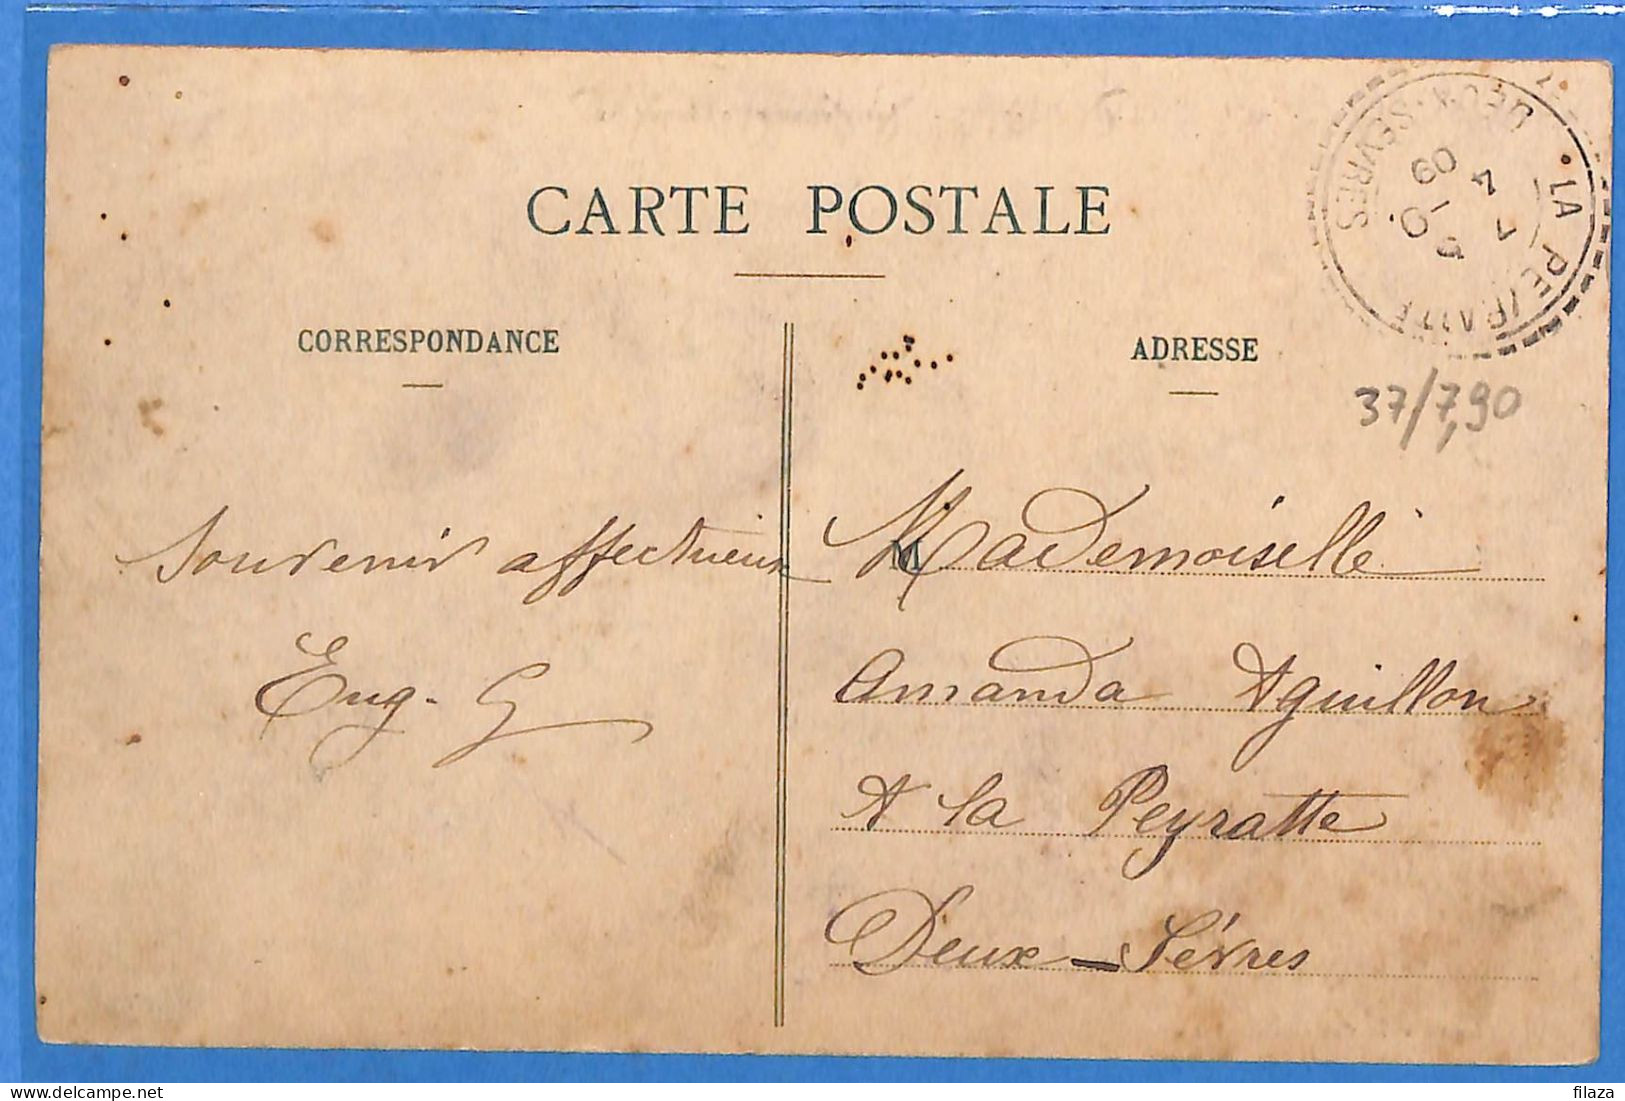 CARTE POSTALE
CORRESPONDANCE
ADRESSE
LA PEYRATTE
DEUX-SEVRES
09
37/7,90
Souvenir affectueux
Eug. G
M
Mademoiselle
Amanda Aguillon
A la Peyratte
Deux-Sèvres
filaza